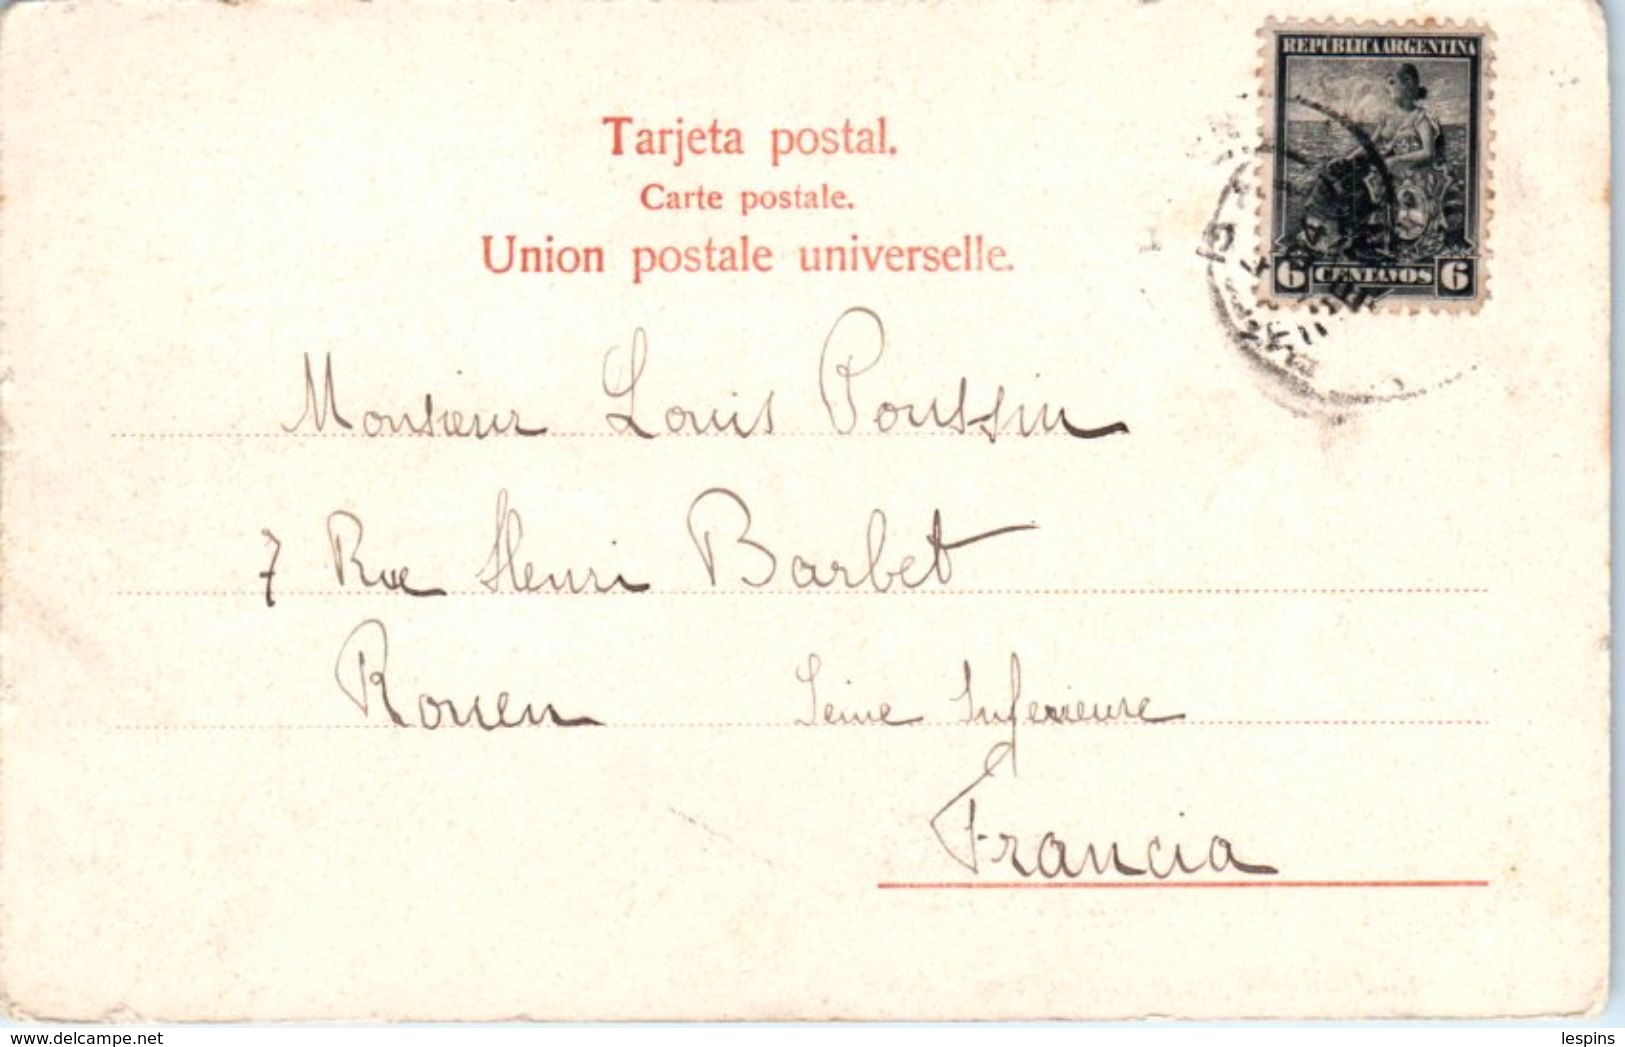 REPÚBLICA ARGENTINA
6 CENTAVOS 6
Tarjeta postal.
Carte postale.
Union postale universelle.
Monsieur Louis Poussin
7 Rue Henri Barbet
Rouen Seine Inferieure
Francia
www.delcampe.net
lespins